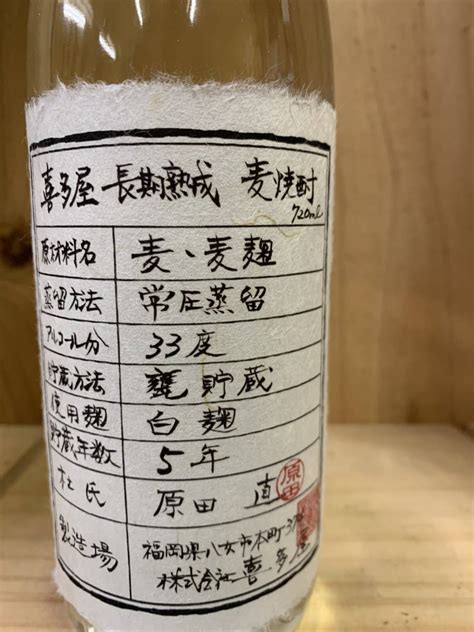 喜多屋 長期熟成 麦焼酎
720ml
原材料名 麦、麦麹
蒸留方法 常圧蒸留
アルコール分 33度
貯蔵方法 甕貯蔵
使用麹 白麹
貯蔵年数 5年
杜氏 原田 直
原田
製造場 福岡県八女市本町374
株式会社 喜多屋